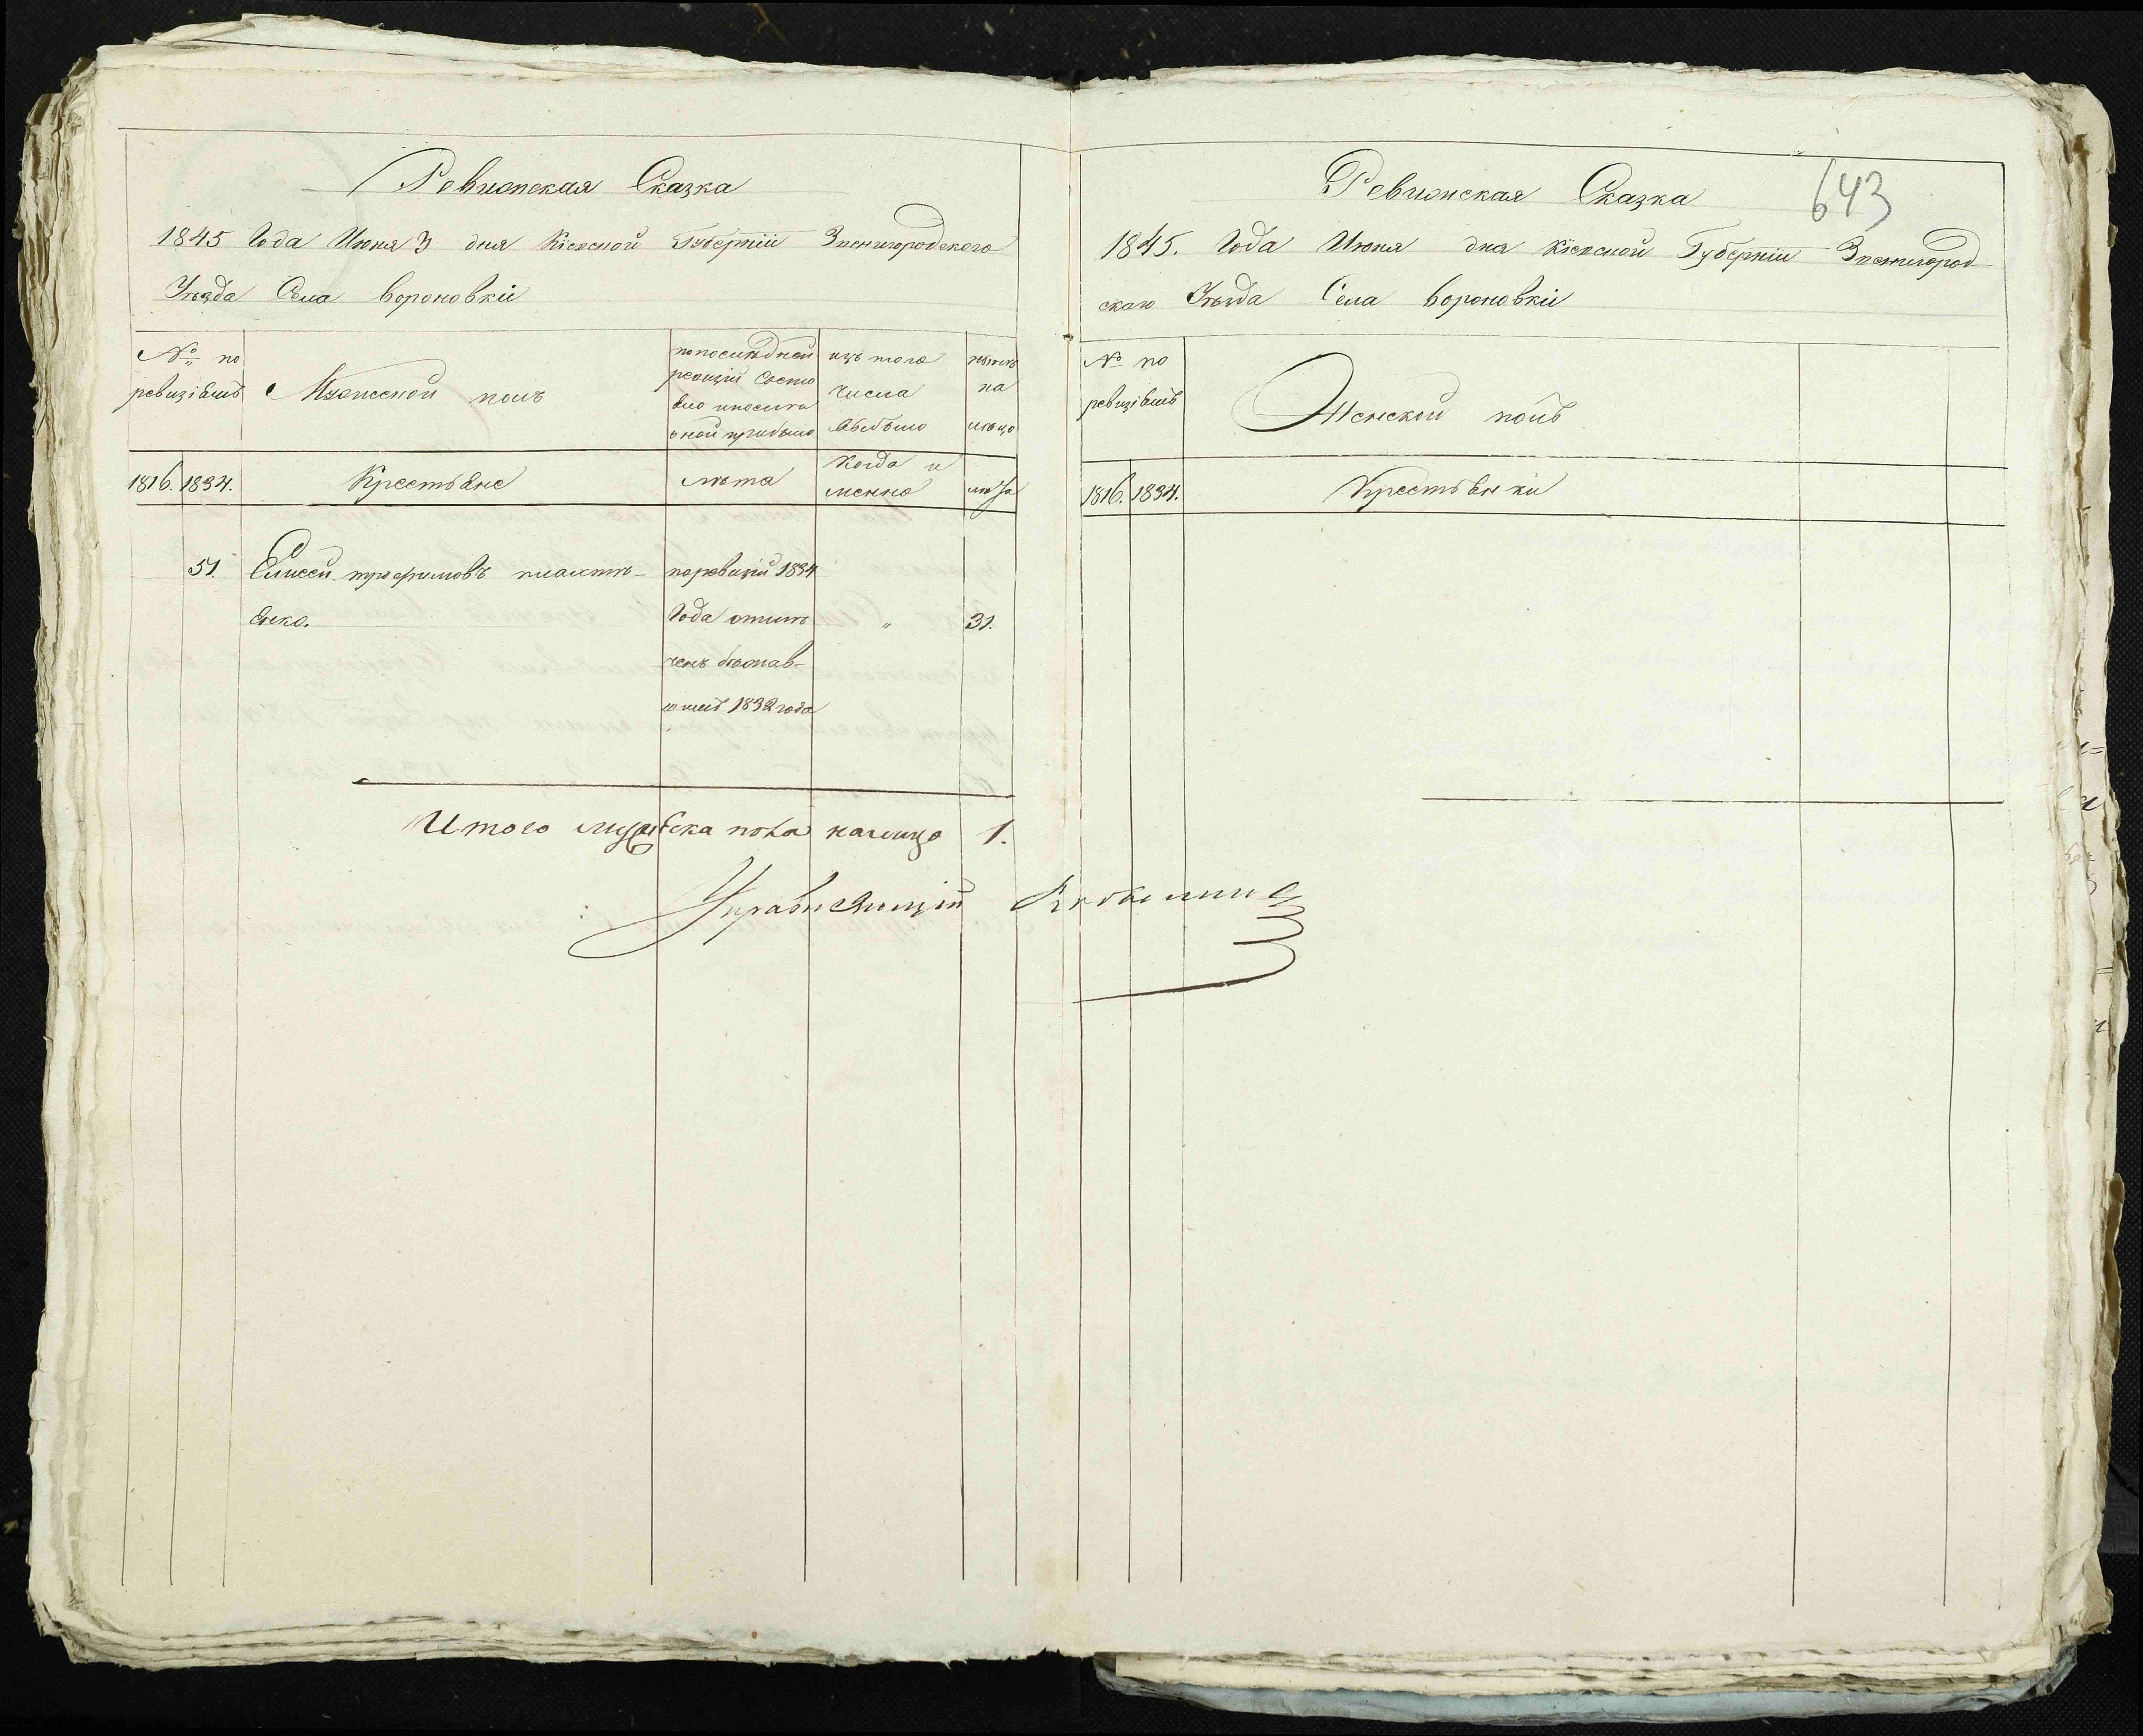 Ревизская Сказка
1845 Года Июня 3 дня Кіевской Губерніи Звенигородского
Уезда Села Вороновки
№ по
ревизіямъ
Мужеской полъ
по последней
ревизіи состо
яло и после
оной прибыло
изъ того
числа
выбыло
ныне
на
лицо
1816. 1834.
Крестьяне
лета
когда и
менно
лета
51.
Елисей трофимовъ
енко.
по ревизіи 1834
Года
1832 года
„
31.
Итого мужеска пола налицо 1.
Управляющій
643
Ревизская Сказка
1845. Года Июня дня Кіевской Губерніи Звенигород
скаго Уезда Села Вороновки
№ по
ревизіямъ
Женской полъ
1816. 1834.
Крестьянки